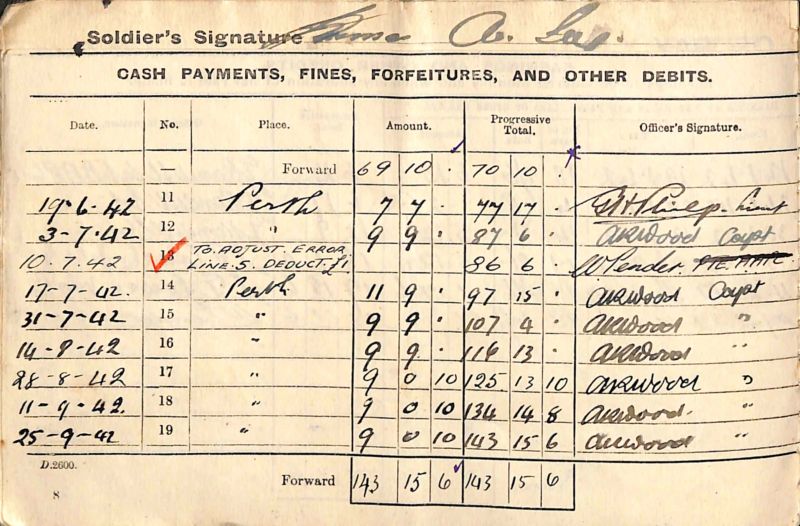 Soldier's Signature A. Lee.
CASH PAYMENTS, FINES, FORFEITURES, AND OTHER DEBITS.
Date. No. Place. Amount. Progressive Total. Officer's Signature.
Forward 69 10 . 70 10 .
19-6-42 11 Perth 7 7 . 77 17 . Lieut
3-7-42 12 " 9 9 . 87 6 . ARWood Capt
10.7.42 13 TO. ADJUST. ERROR LINE. 5. DEDUCT. £1 86 6 WPender.
17-7-42. 14 Perth 11 9 . 97 15 . ARWood Capt
31-7-42 15 " 9 9 . 107 4 . ARWood "
14-8-42 16 " 9 9 . 116 13 . ARWood "
28-8-42 17 " 9 0 10 125 13 10 ARWood "
11-9-42. 18 " 9 0 10 134 14 8 ARWood. "
25-9-42 19 " 9 0 10 143 15 6 ARWood "
D.2600. Forward 143 15 6 143 15 6
8